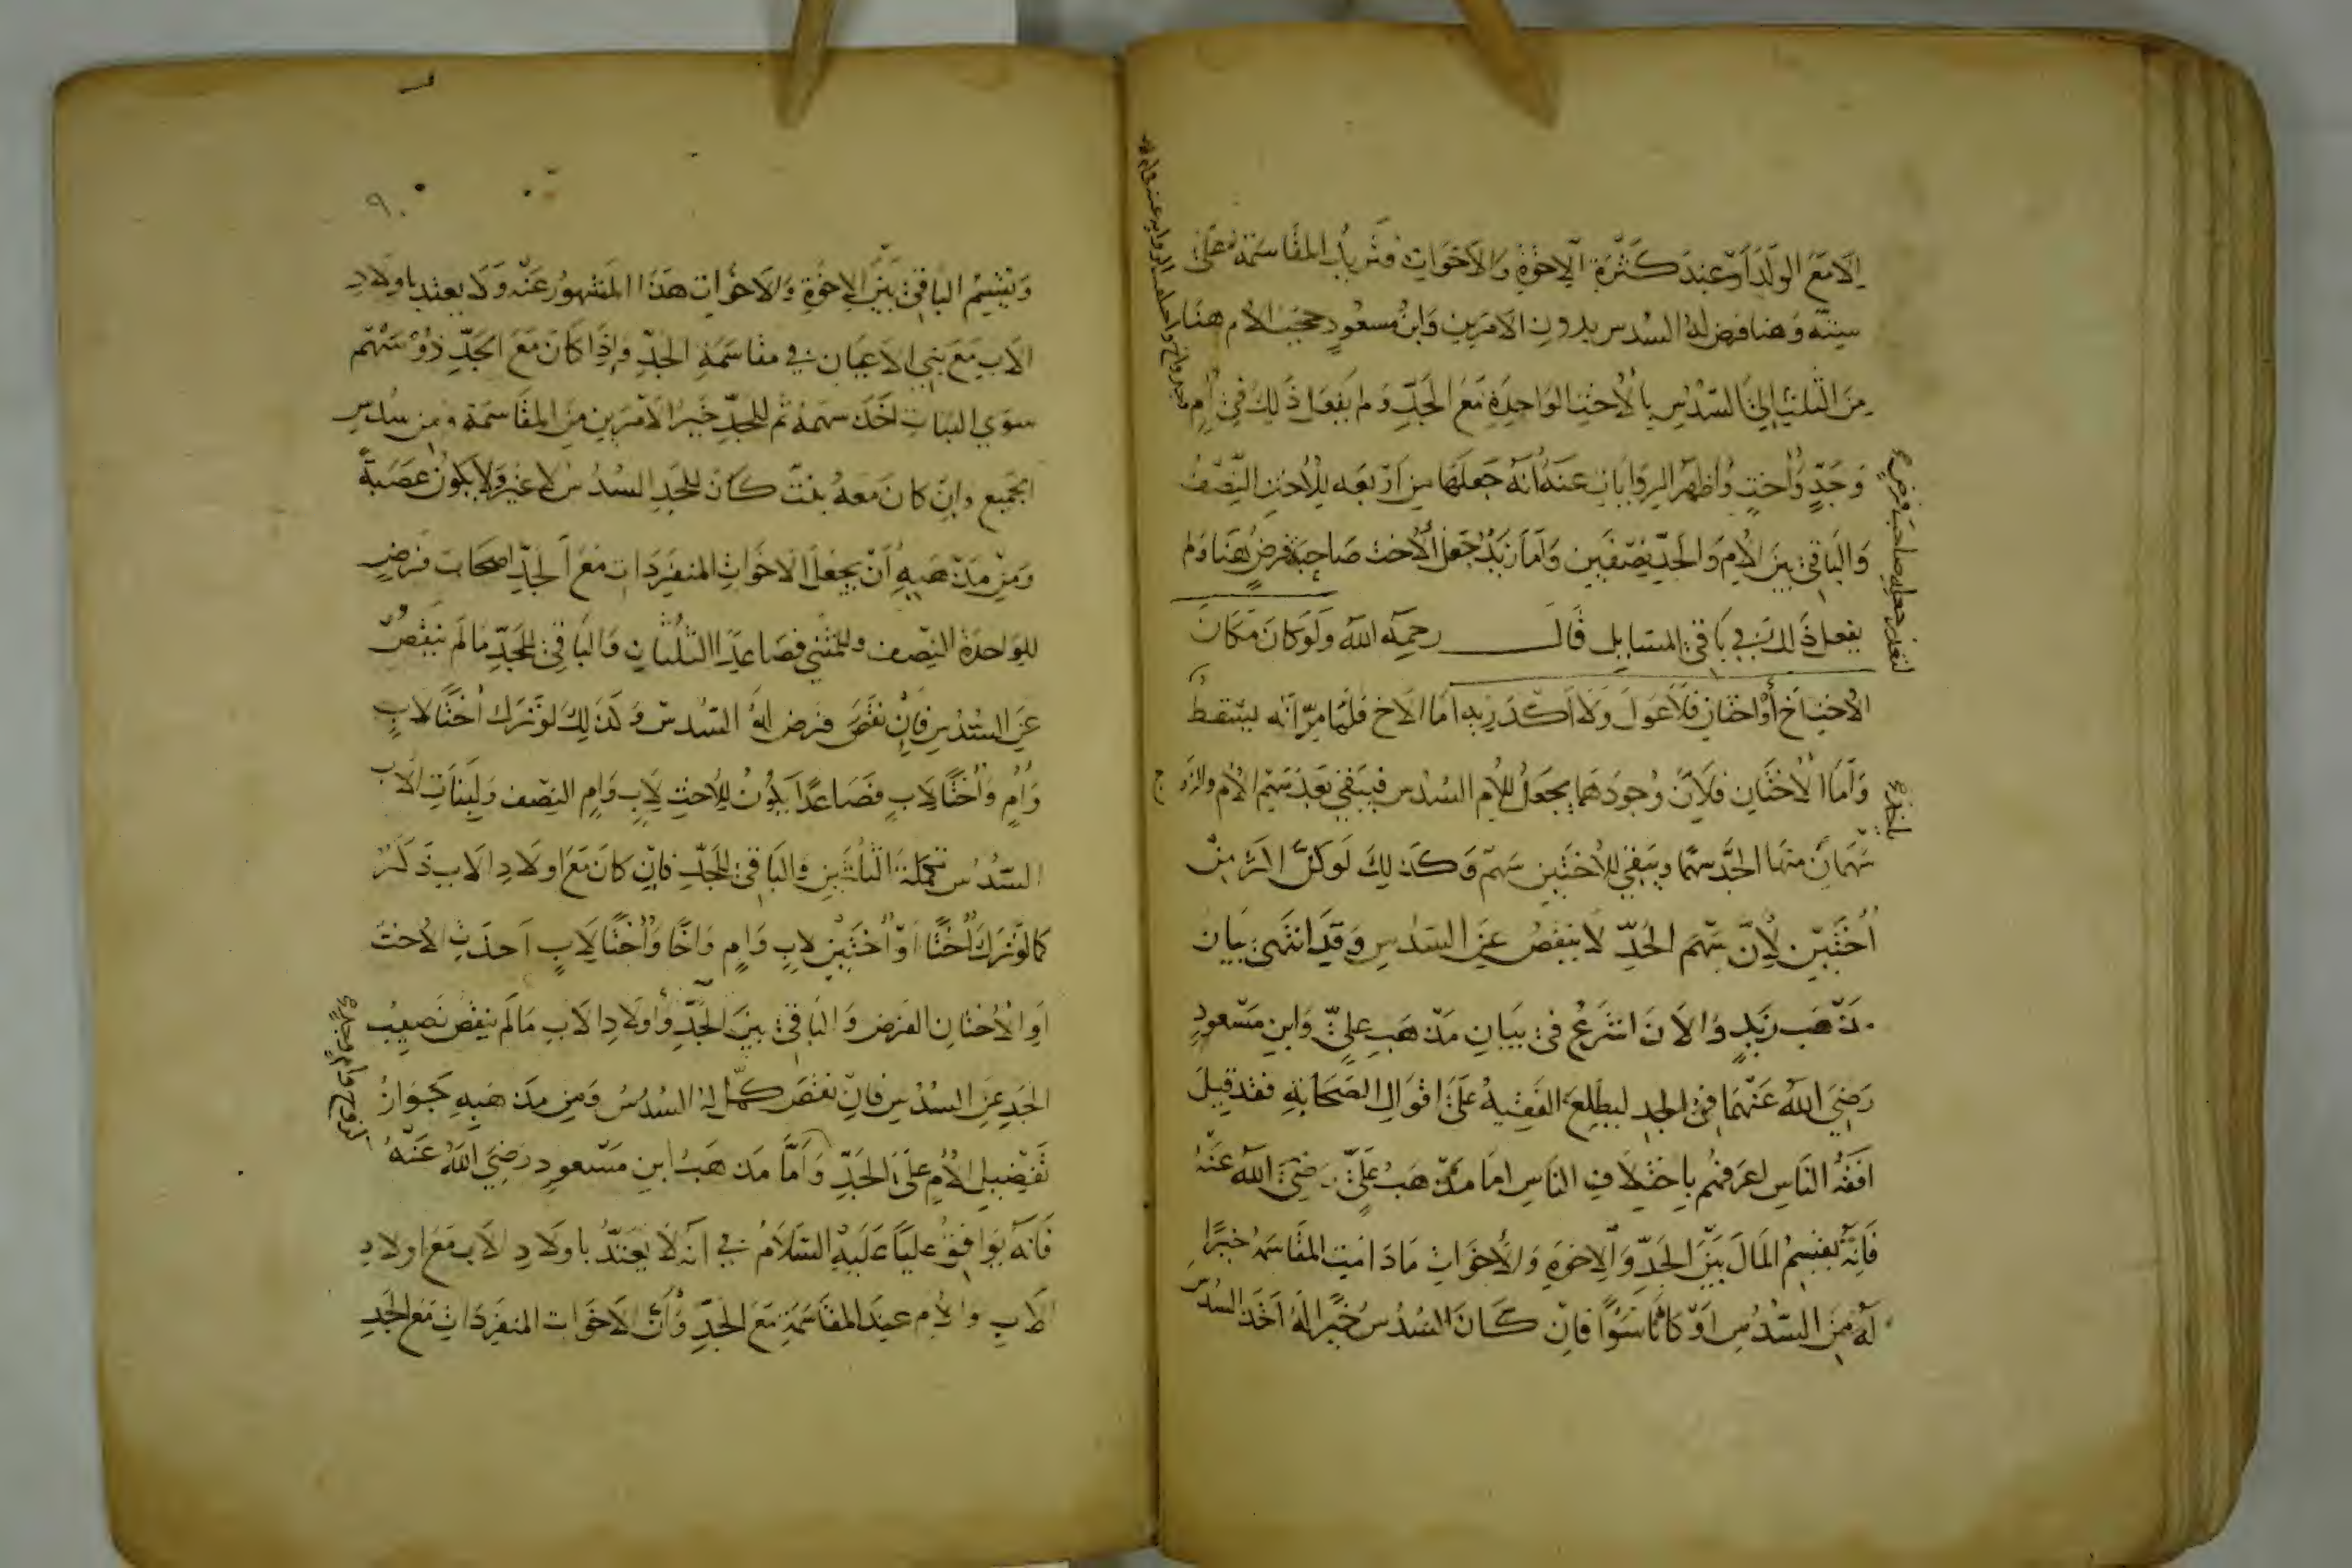 إلا مع الولد أو عند كثرة الإخوة والأخوات فتربك المقاسمة على
سبيته وهنا فرض له السدس بدون الأمرين وابن مسعود حجب الأم هنا
من الثلث إلى السدس بالأخت الواحدة مع الجد ولم يفعل ذلك في أم
وجد وأخت وأظهر الروايات عنه أنه جعلها من أربعة للأخت النصف
والباقي بين الأم والجد نصفين وأما زيد جعل الأخت صاحبة فرض هنا ولم
يفعل ذلك في باقي المسايل قال رحمه الله ولو كان مكان
الأخت أخ أو أختان فلا عول ولا أكدرية أما الأخ فلما مر أنه يسقط
وأما الأختان فلأن وجودهما يجعل للأم السدس فيبقى بعد سهم الأم والزوج
سهمان منها الجد سهما ويبقى للأختين سهم وكذلك لو كن أكثر من
أختين لأن سهم الجد لا ينقص عن السدس وقد انتهى بيان
مذهب زيد والآن اشرع في بيان مذهب علي وابن مسعود
رضي الله عنهما في الجد ليطلع الفقيه على اقوال الصحابة فقد قيل
افقه الناس اعرفهم باختلاف الناس اما مذهب علي رضي الله عنه
فإنه يقسم المال بين الجد والإخوة والأخوات ما دامت المقاسمة خيرا
له من السدس او كانا سوا فان كان السدس خيرا له أخذ السدس
لتعذر جعله صاحب فرض
ياخذ
٩٠
ويقسم الباقي بين الإخوة والأخوات هذا المشهور عنه ولا يعتد باولاد
الاب مع بني الاعيان في مقاسمة الجد وإذا كان مع الجد ذو سهم
سوى البنات اخذ سهمه ثم للجد خير الأمرين من المقاسمة ومن سدس
الجميع وإن كان معه بنت كان للجد السدس لا غير ولا يكون عصبة
ومن مذهبه أن يجعل الأخوات المنفردات مع الجد اصحاب فرض
للواحدة النصف وللمثنى فصاعدا الثلثان والباقي للجد ما لم ينقص
عن السدس فإن نقص فرض له السدس وكذلك لو ترك أختا لاب
وأم وأختا لاب فصاعدا يكون للأخت لاب وام النصف ولبنات الأب
السدس تكملة الثلثين والباقي للجد فان كان مع اولاد الاب ذكر
كما لو ترك أختا أو أختين لاب وام واخا وأختا لاب اخذت الأخت
او الأختان الفرض والباقي بين الجد وأولاد الاب ما لم ينقص نصيب
الجد عن السدس فان نقص كمل له السدس ومن مذهبه جواز
تفضيل الأم على الجد وأما مذهب ابن مسعود رضي الله عنه
فانه يوافق عليا عليه السلام في أنه لا يعتد باولاد الاب مع اولاد
الاب والام عند المقاسمة مع الجد وأن الاخوات المنفردات مع الجد